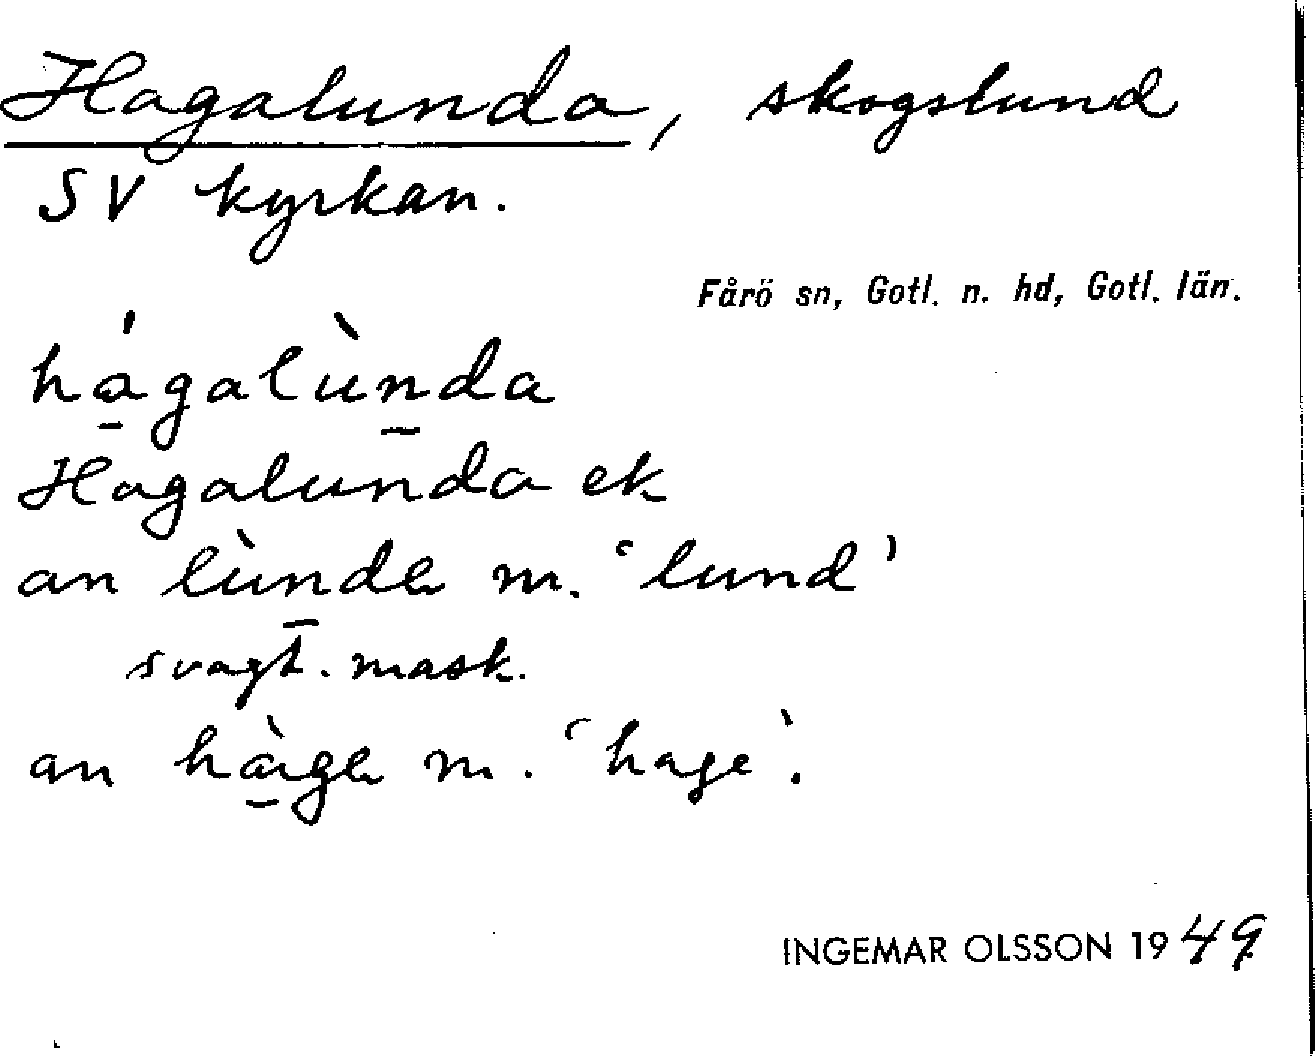 Hagalunda, skogslund
SV kyrkan.
Fårö sn, Gotl. n. hd, Gotl. län.
há̱galùṉda
Hagalunda ek
an lùṉda m. 'lund'
svagt. mask.
an hà̱ga m. 'hage'.
INGEMAR OLSSON 1949